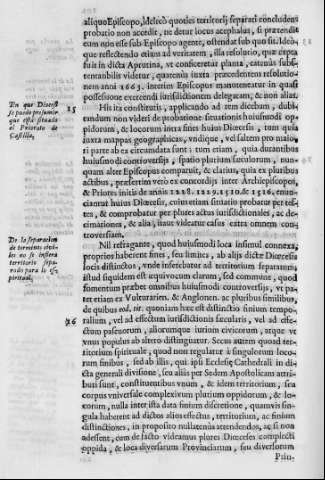 aliquo Episcopo, idcircò quoties territorij separati concludens
probatio non accedit, ne detur locus acephalus, si prætendit
eum non esse sub Episcopo agente, ostendat sub quo sit. Ideò-
que reflectendo etiam ad veritatem, illa resolutio, quæ capta
fuit in dicta Aprutina, vt conficeretur planta, eatenùs sub-
stentabilis videtur, quatenùs iuxta præcedentem resolutio-
nem anni 1663. interim Episcopus manuteneatur in quasi
possessione exercendi iurisdictionem delegatam, & non aliàs.
En que Diocesi
se puede presumir
que està situado
el Priorato de
Castilla.
15
His ita constitutis, applicando ad rem dicebam, dubi-
tandum non videri de probatione situationis huiusmodi op-
pidorum, & locorum intra fines huius Diœcesis, tum quia
iuxta mappas geographicas, vndique, vel saltem pro maio-
ri parte ab ea circumdata sunt: tum etiam, quia durantibus
huiusmodi controversijs, spatio plurium sæculorum, nun-
quam alter Episcopus comparuit, & clarius, quia ex pluribus
actibus, præsertim verò ex concordijs inter Archiepiscopos,
& Priores initis de annis 1228. 1229. 1510. & 1516. enun-
ciantur huius Diœcesis, cuius etiam sintatio probatur per tes-
tes, & comprobatur per plures actus iurisdictionales, ac de-
cimationes, & alia, itaut videatur casus extra omnem con-
troversiam.
De la separacion
de terminos dota-
les no se infiera
territorio sepa-
rado para lo es-
piritual.
Nil refragante, quod huiusmodi loca insimul connexa,
proprios haberent fines, seu limites, ab alijs dictæ Diœcesis
locis distinctos, vnde inferebatur ad territorium separatum,
istud siquidem est æquivocum clarum, sed commune, quod
fomentum præbet omnibus huiusmodi controversijs, vt pa-
tet etiam ex Vulturarien. & Anglonen. ac pluribus similibus,
de quibus eod. tit. quoniàm hæc est distinctio finium tempo-
16
ralium, vel ad effectum iurisdictionis sæcularis, vel ad effe-
ctum pascuorum, aliorumque iurium civicorum, atque vt
vnus populus ab altero distinguatur. Secus autem quoad ter-
ritorium spirituale, quod non regulatur à singulorum loco-
rum finibus, sed ab illis, qui ipsi Ecclesiæ Cathedrali in di-
cta generali divisione, seu aliàs per Sedem Apostolicam attri-
buti sunt, constituentibus vnum, & idem territorium, seu
corpus vniversale complexivum plurium oppidorum, & lo-
corum, nulla inter ista data finium discretione, quamvis sin-
gula haberent ad dictos alios effectus, territorium, ac finium
distinctiones, in proposito nullatenùs attendendos, ac si non
adessent, cum de facto videamus plures Diœceses complecti
oppida, & loca diversarum Provinciarum, seu diversorum
Prin-